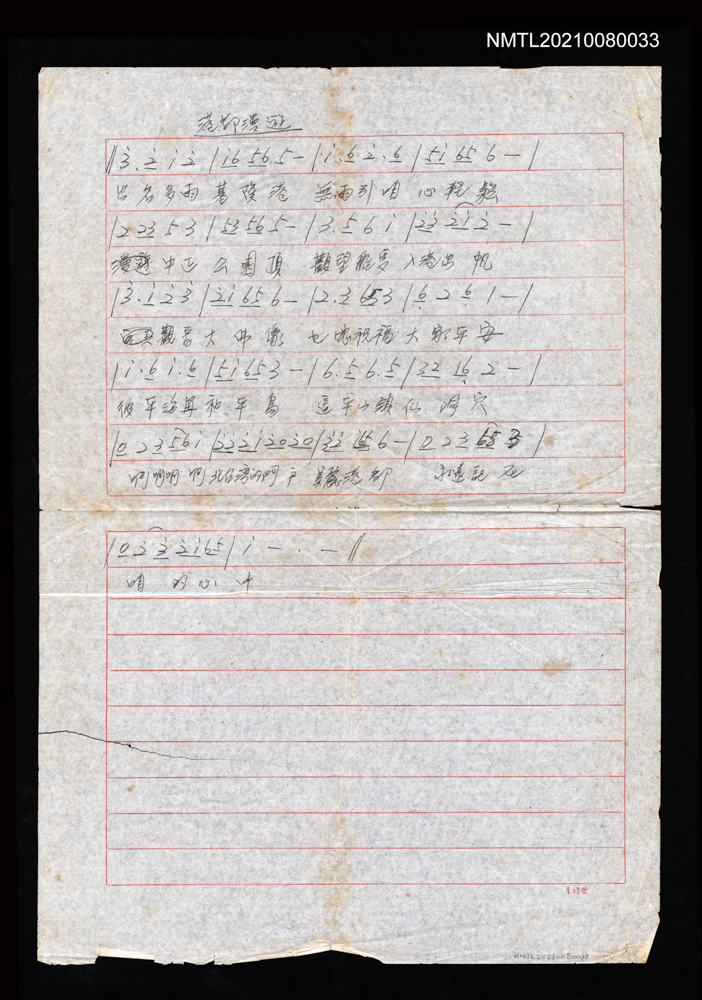 NMTL20210080033
港都漫遊
‖3.2 1 2|16 56 5-|1.6 2.6|51 65 6-|
出名多雨基隆港 無雨引咱心輕鬆
|2 23 5 3|53 56 5-|3.5 6 1|23 21 2-|
漫遊中正公園頂 觀望船隻入港出帆
|3.1 2 3|21 65 6-|2.3 653|6 2 6 1-|
觀音大佛像 七號祝福大家平安
|1.6 1.6|51 65 3-|6.5 6.5|32 16 2-|
彼平海與和平島 這平山頭仙洞穴
|0 2 3 56 1|22 21 20 20|32 165 6-|0 2 3 65 3|
啊啊啊啊北台灣的門戶 美麗港都 永遠記在
|0 2 2 21 65|1 - . -‖
咱的心中
NMTL20210080033